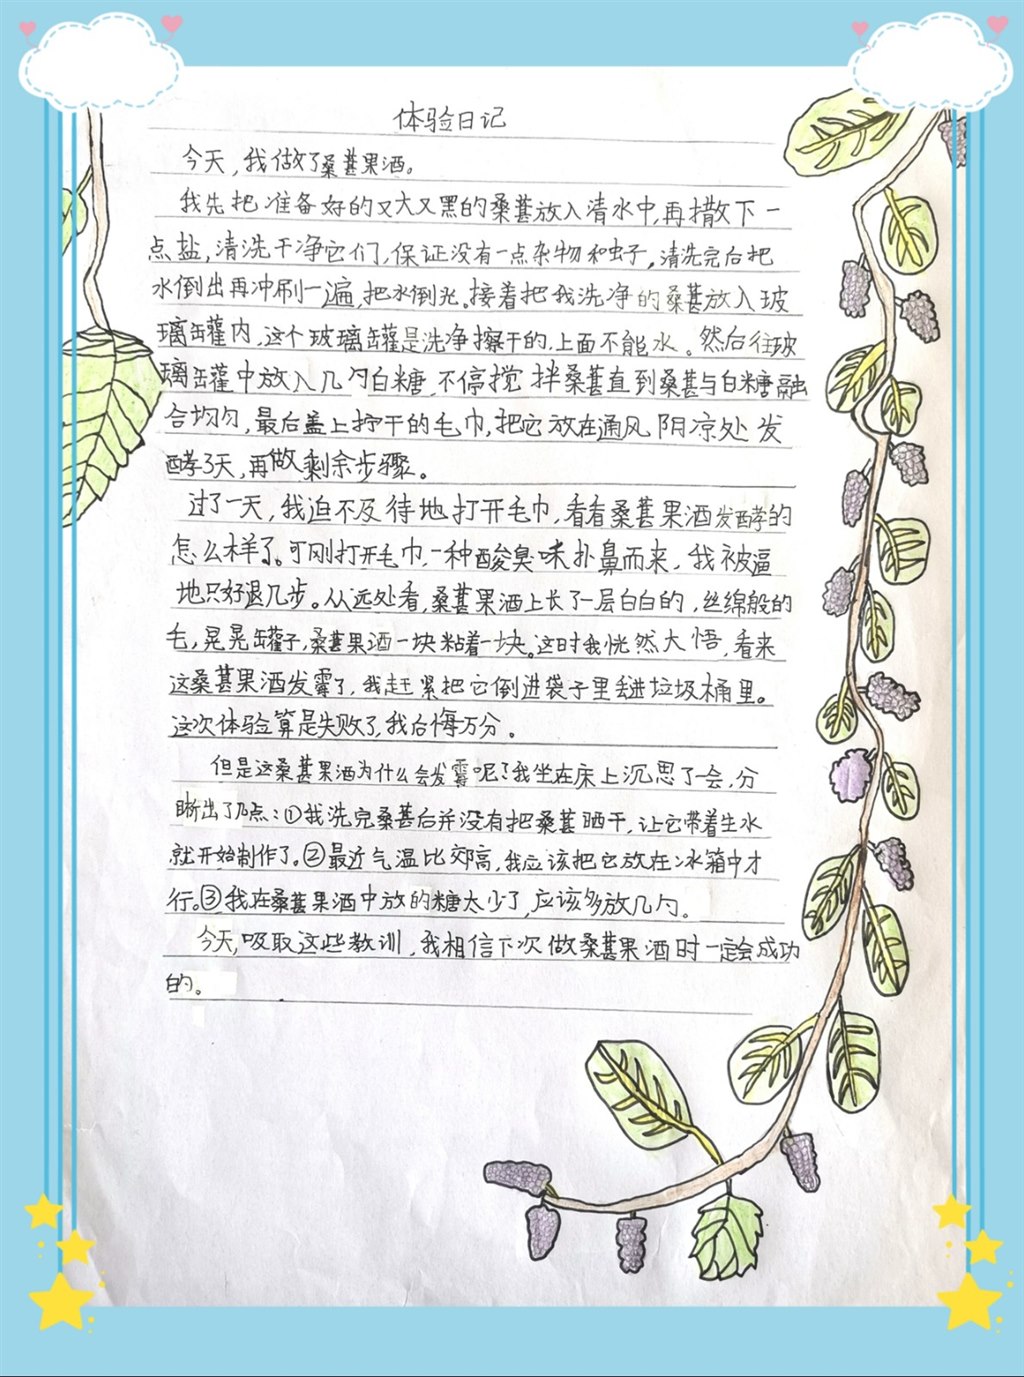 体验日记
今天,我做了桑葚果酒。
我先把准备好的又大又黑的桑葚放入清水中,再撒下一
点盐,清洗干净它们,保证没有一点杂物和虫子,清洗完后把
水倒出再冲刷一遍,把水倒光。接着把我洗净的桑葚放入玻
璃罐内,这个玻璃罐是洗净擦干的,上面不能水。然后往玻
璃罐中放入几勺白糖,不停搅拌桑葚直到桑葚与白糖融
合均匀,最后盖上拧干的毛巾,把它放在通风阴凉处发
酵3天,再做剩余步骤。
过了一天,我迫不及待地打开毛巾,看看桑葚果酒发酵的
怎么样了。可刚打开毛巾,一种酸臭味扑鼻而来,我被逼
地只好退几步。从远处看,桑葚果酒上长了一层白白的,丝绵般的
毛,晃晃罐子,桑葚果酒一块粘着一块。这时我恍然大悟,看来
这桑葚果酒发霉了,我赶紧把它倒进袋子里丢进垃圾桶里。
这次体验算是失败了,我后悔万分。
但是这桑葚果酒为什么会发霉呢?我坐在床上沉思了一会,分
晰出了几点:①我洗完桑葚后并没有把桑葚晒干,让它带着生水
就开始制作了。②最近气温比较高,我应该把它放在冰箱中才
行。③我在桑葚果酒中放的糖太少了,应该多放几勺。
今天,吸取这些教训,我相信下次做桑葚果酒时一定会成功
的。